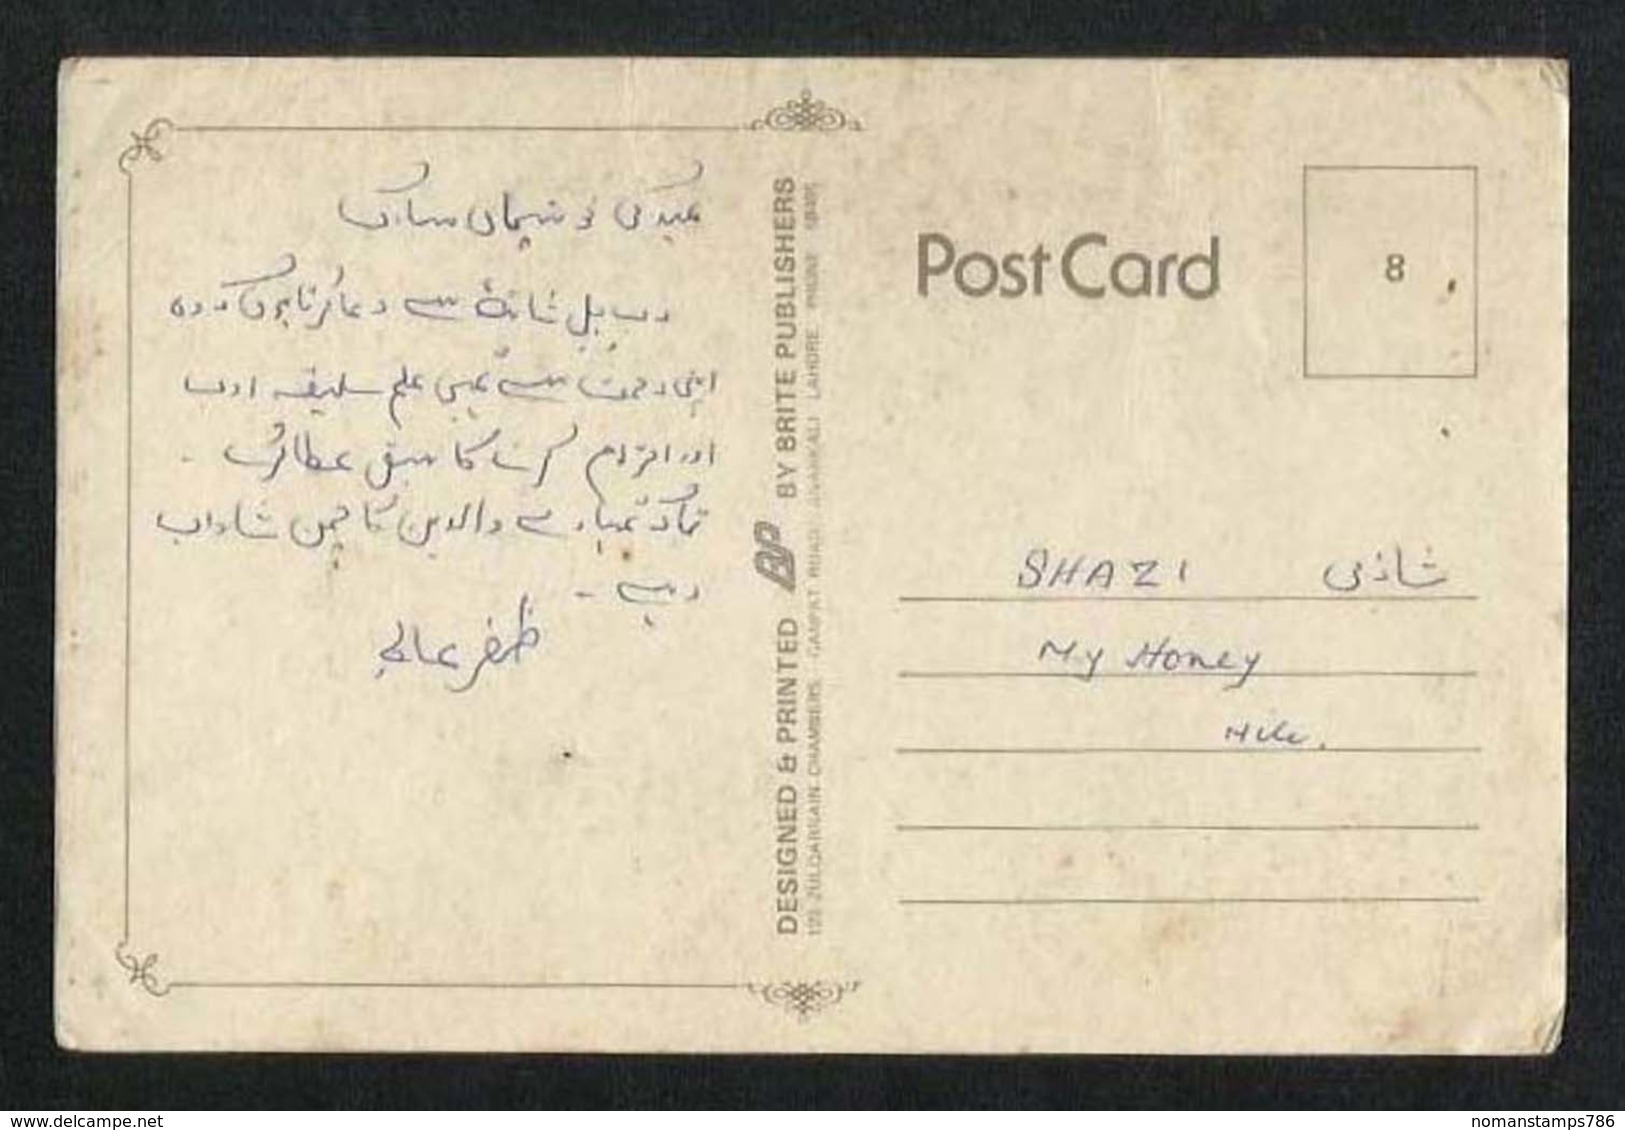 عید کی خوشیاں مبارک
رب جل شانہ سے دعا کرتا ہوں کہ وہ
اپنی رحمت سے تمہیں علم سلیقہ ادب
اور احترام کرنے کا سبق عطا کرے ۔
تاکہ تمہارے والدین کا چمن شاداب
رہے ۔
ظفر عالی
DESIGNED & PRINTED BY BRITE PUBLISHERS
122, ZULQARNAIN CHAMBERS, GANPAT ROAD, ANARKALI LAHORE PHONE
Post Card
8
SHAZI شازی
My Honey
nomanstamps786